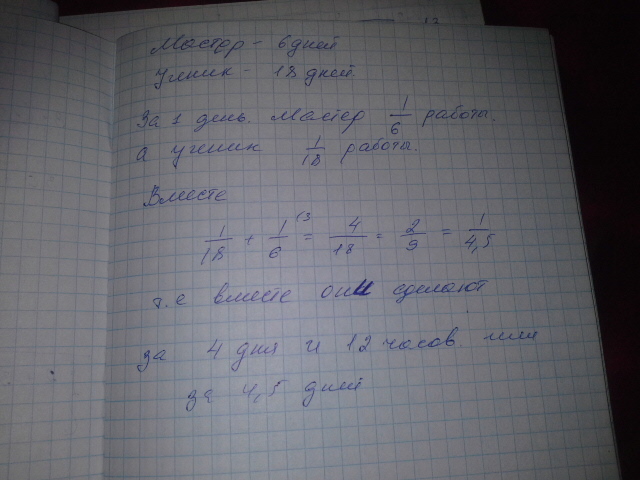 Мастер - 6 дней
Ученик - 18 дней
За 1 день. Мастер 1/6 работы.
а ученик 1/18 работы.
Вместе
1/18 + 1/6 (3 = 4/18 = 2/9 = 1/4,5
т.е вместе они сделают
за 4 дня и 12 часов или
за 4,5 дней